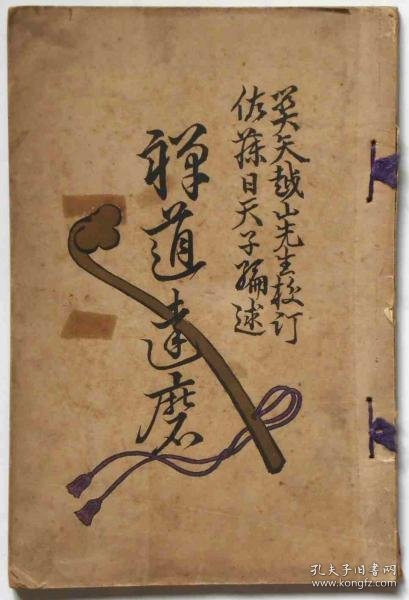 矢越山先生校订
佐藤日天子編述
禅道達磨
孔夫子旧书网
www.kongfz.com